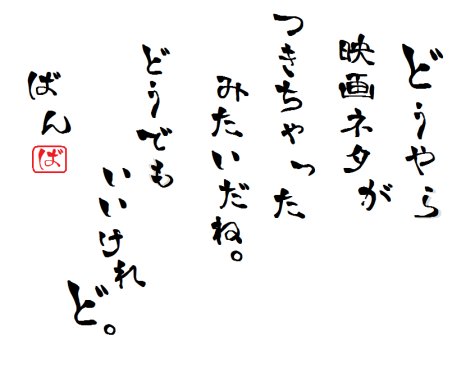 どうやら
映画ネタが
つきちゃった
みたいだね。
どうでも
いいけれ
ど。
ばん
ば